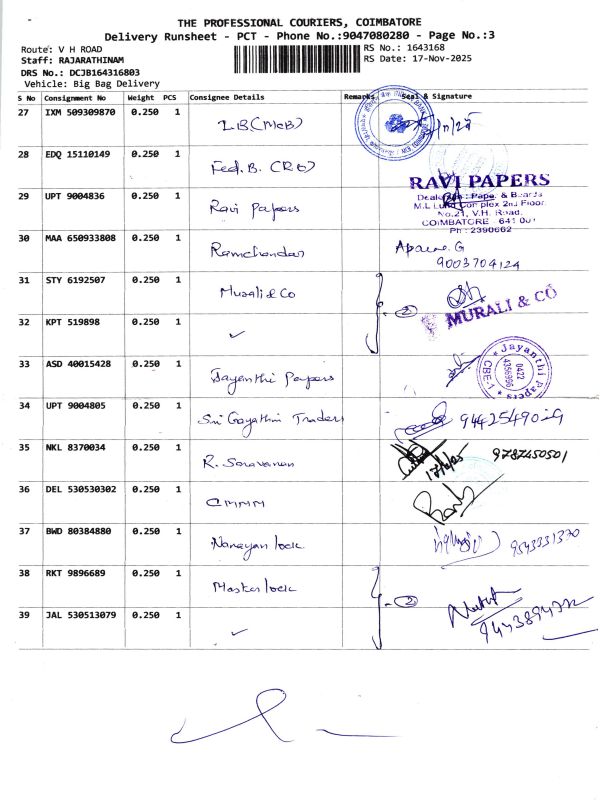 THE PROFESSIONAL COURIERS, COIMBATORE
Delivery Runsheet - PCT - Phone No.:9047080280 - Page No.:3
Route: V H ROAD
RS No.: 1643168
Staff: RAJARATHINAM
RS Date: 17-Nov-2025
DRS No.: DCJB164316803
Vehicle: Big Bag Delivery
S No Consignment No Weight PCS Consignee Details Remarks Seal & Signature
27 IXM 509309870 0.250 1
28 EDQ 15110149 0.250 1 Fed. B.
29 UPT 9004836 0.250 1 Ravi Papers
RAVI PAPERS
M.L. Complex 2nd Floor
No.21, V.H. Road,
COIMBATORE - 641 001
Ph : 2390662
30 MAA 650933808 0.250 1 Ramchandar
9003704124
31 STY 6192507 0.250 1 Murali & Co
2
MURALI & CO
32 KPT 519898 0.250 1 ✓
33 ASD 40015428 0.250 1 Jayanthi Papers
Jayanthi Papers
CBE-1
0422
4356996
34 UPT 9004805 0.250 1 Sri Gayathri Traders
35 NKL 8370034 0.250 1 R. Saravanan
9787450501
36 DEL 530530302 0.250 1 CMMM
37 BWD 80384880 0.250 1 Narayan lock
9543331370
38 RKT 9896689 0.250 1 Master lock
2
39 JAL 530513079 0.250 1 ✓